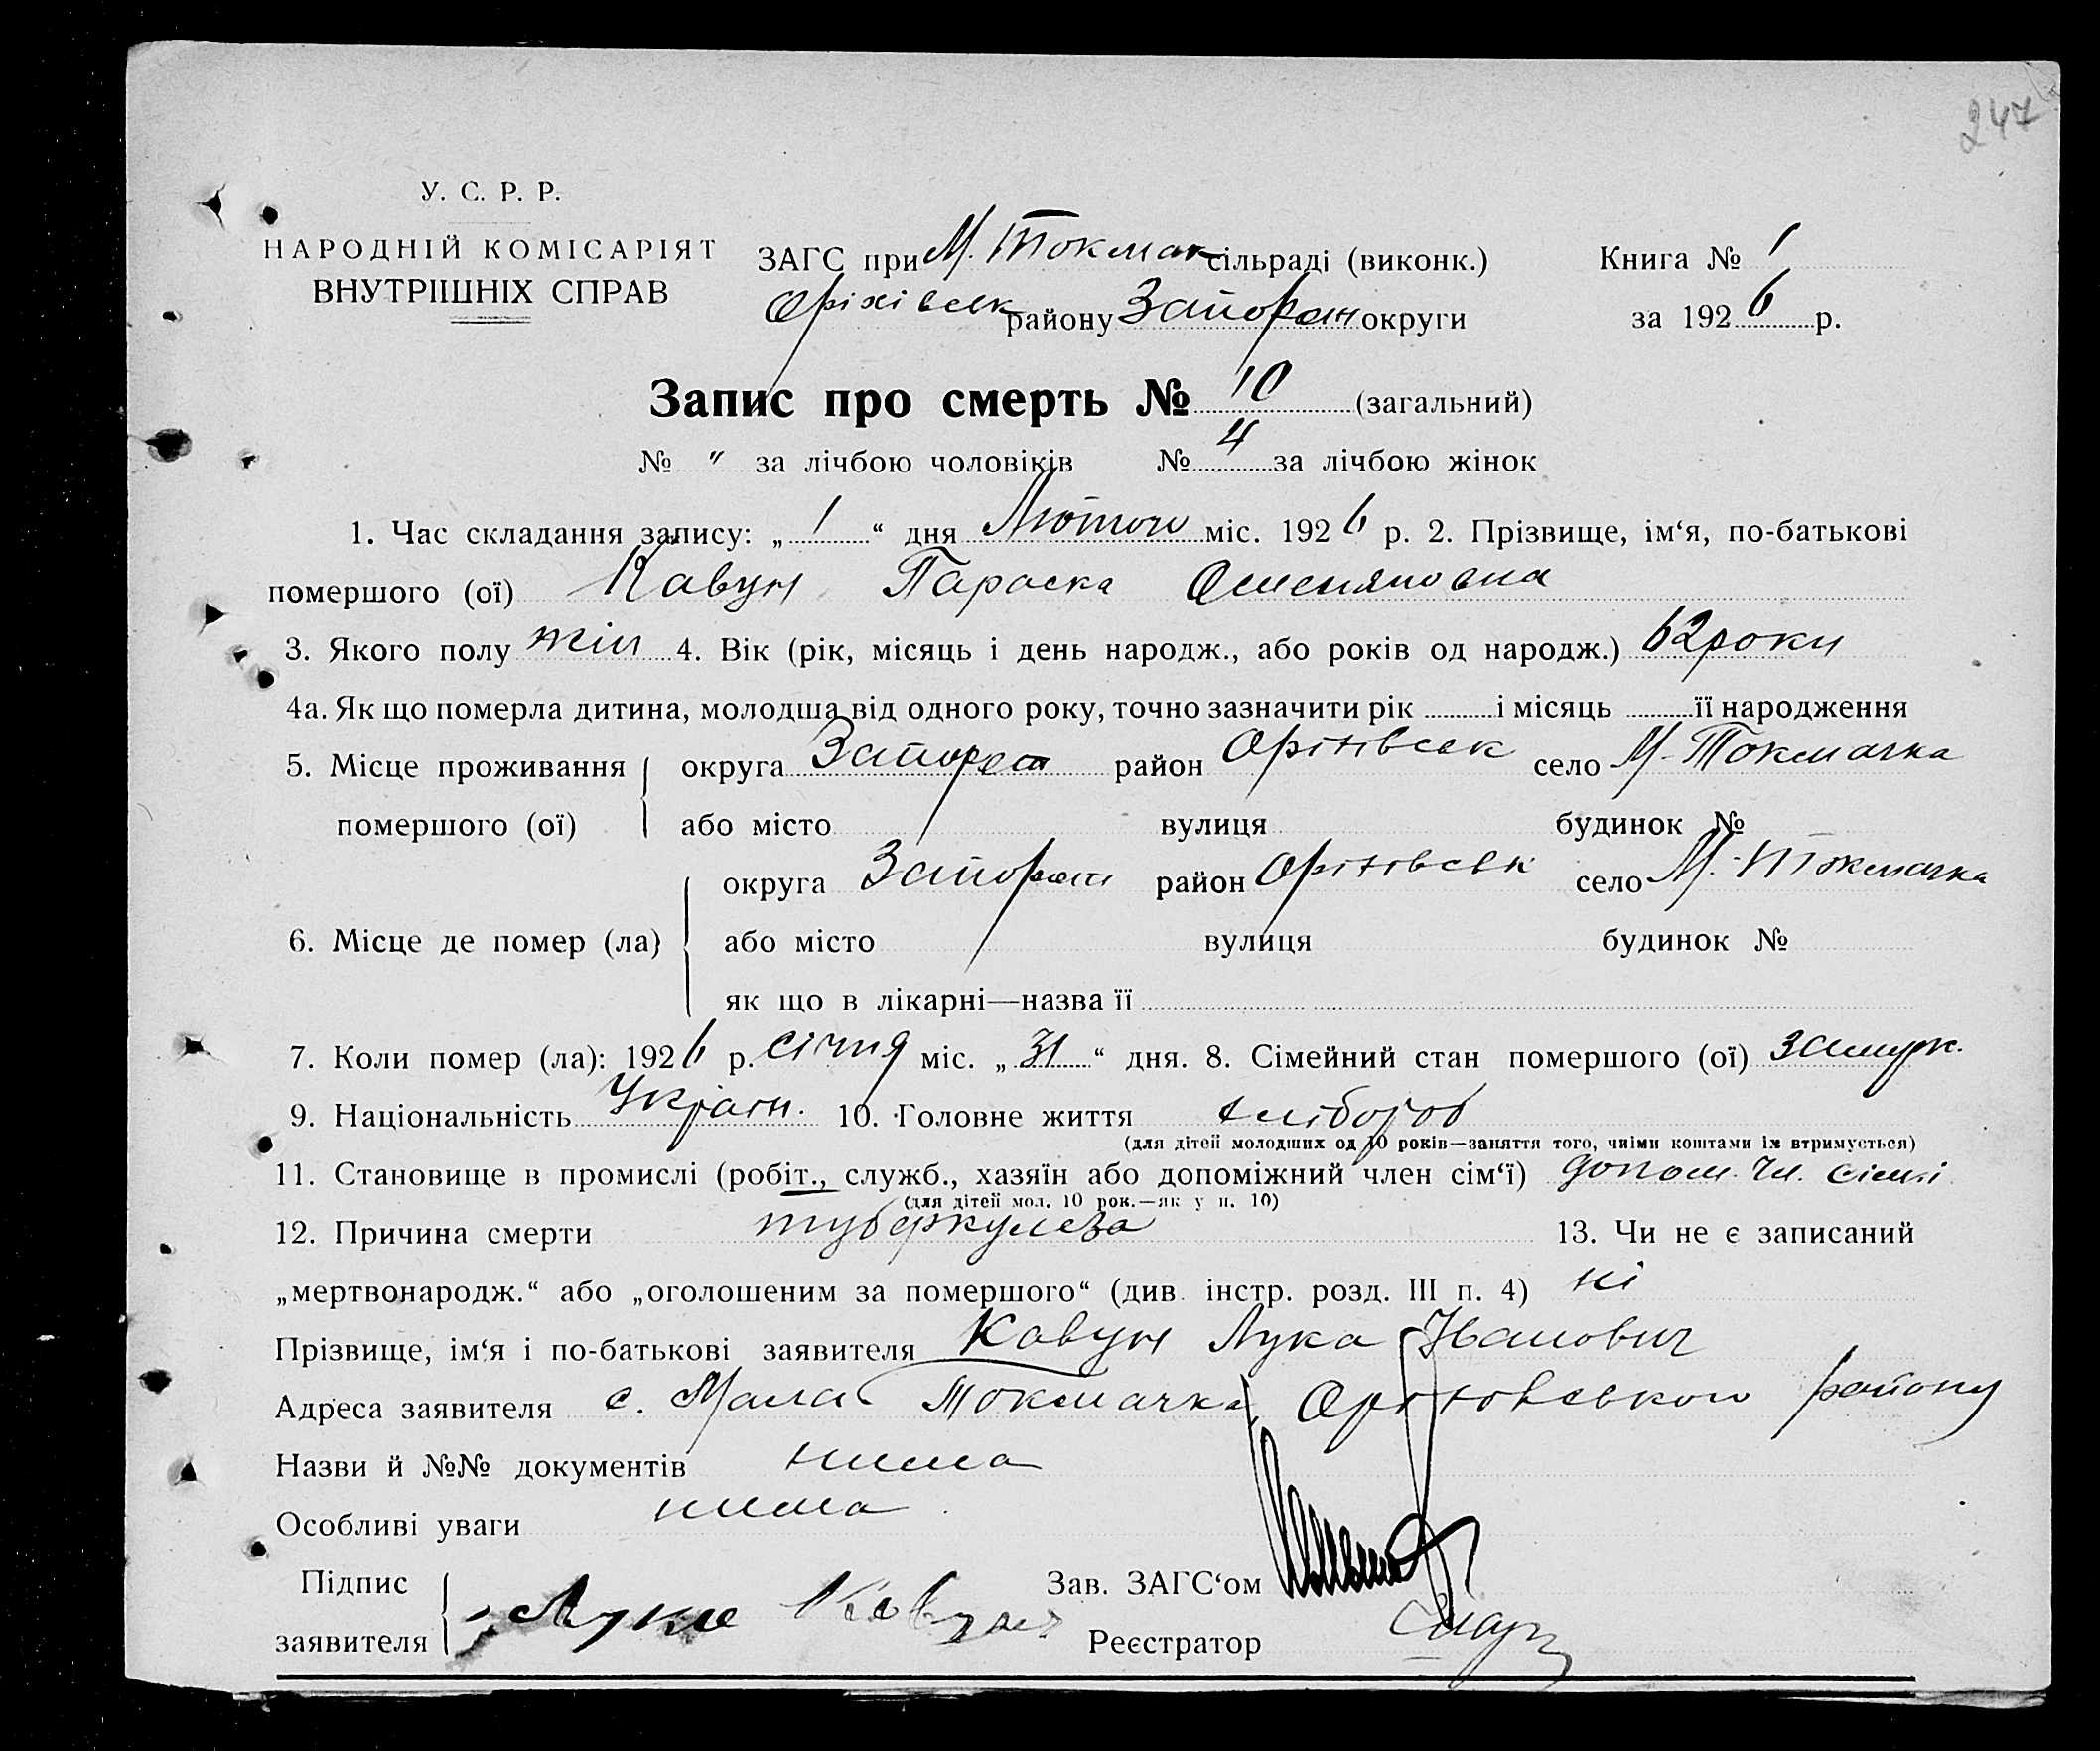 247
У. С. Р. Р.
НАРОДНІЙ КОМІСАРІЯТ
ВНУТРІШНІХ СПРАВ
ЗАГС при М. Токмак сільраді (виконк.)
Оріхівськ району Запорож округи
Книга № 1
за 1926 р.
Запис про смерть № 10 (загальний)
№ " за лічбою чоловіків № 4 за лічбою жінок
1. Час складання запису: „1“ дня Лютого міс. 1926 р. 2. Прізвище, ім‘я, по-батькові
помершого (ої) Кавун Параска
3. Якого полу жін 4. Вік (рік, місяць і день народж., або років од народж.) 62 роки
4а. Як що померла дитина, молодша від одного року, точно зазначити рік і місяць її народження
5. Місце проживання помершого (ої) округа Запорож район Оріхівськ село М-Токмачка
або місто вулиця будинок №
6. Місце де помер (ла) округа Запорож район Оріхівськ село М.-Токмачка
або місто вулиця будинок №
як що в лікарні—назва її
7. Коли помер (ла): 1926 р. січня міс. „31“ дня. 8. Сімейний стан помершого (ої) замуж.
9. Національність Україн. 10. Головне життя хлібороб
(для дітей молодших од 10 років—заняття того, чиїми коштами їх втримується)
11. Становище в промислі (робіт., служб., хазяїн або допоміжний член сім‘ї) допом. чл. сімї
(для дітей мол. 10 рок.—як у п. 10)
12. Причина смерти туберкулеза 13. Чи не є записаний
„мертвонародж.“ або „оголошеним за помершого“ (див. інстр. розд. III п. 4) ні
Прізвище, ім‘я і по-батькові заявителя Кавун Лука Іванович
Адреса заявителя с. Мала Токмачка, Оріховського району
Назви й №№ документів нима
Особливі уваги нима
Підпис заявителя Лука Кавун
Зав. ЗАГС‘ом
Реєстратор